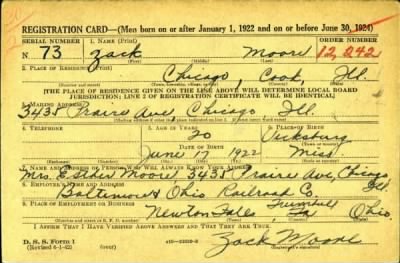 REGISTRATION CARD—(Men born on or after January 1, 1922 and on or before June 30, 1924)
SERIAL NUMBER 1. NAME (Print) ORDER NUMBER
N 73 Zack Moore 12,242
(First) (Middle) (Last)
2. PLACE OF RESIDENCE (Print)
Chicago, Cook, Ill.
[THE PLACE OF RESIDENCE GIVEN ON THE LINE ABOVE WILL DETERMINE LOCAL BOARD
JURISDICTION; LINE 2 OF REGISTRATION CERTIFICATE WILL BE IDENTICAL]
3. MAILING ADDRESS
3435 Prairie Ave Chicago Ill.
4. TELEPHONE 5. AGE IN YEARS 6. PLACE OF BIRTH
20 Vicksburg
DATE OF BIRTH
June 17 1922 Miss.
7. NAME AND ADDRESS OF PERSON WHO WILL ALWAYS KNOW YOUR ADDRESS
Mrs. Moore 3435 Prairie Ave, Chicago Ill.
8. EMPLOYER'S NAME AND ADDRESS
Baltimore & Ohio Railroad Co.
9. PLACE OF EMPLOYMENT OR BUSINESS
Newton Falls, Trumbull Ohio
I AFFIRM THAT I HAVE VERIFIED ABOVE ANSWERS AND THAT THEY ARE TRUE.
D. S. S. Form 1
(Revised 6-1-42) (over)
Zack Moore
(Registrant's signature)